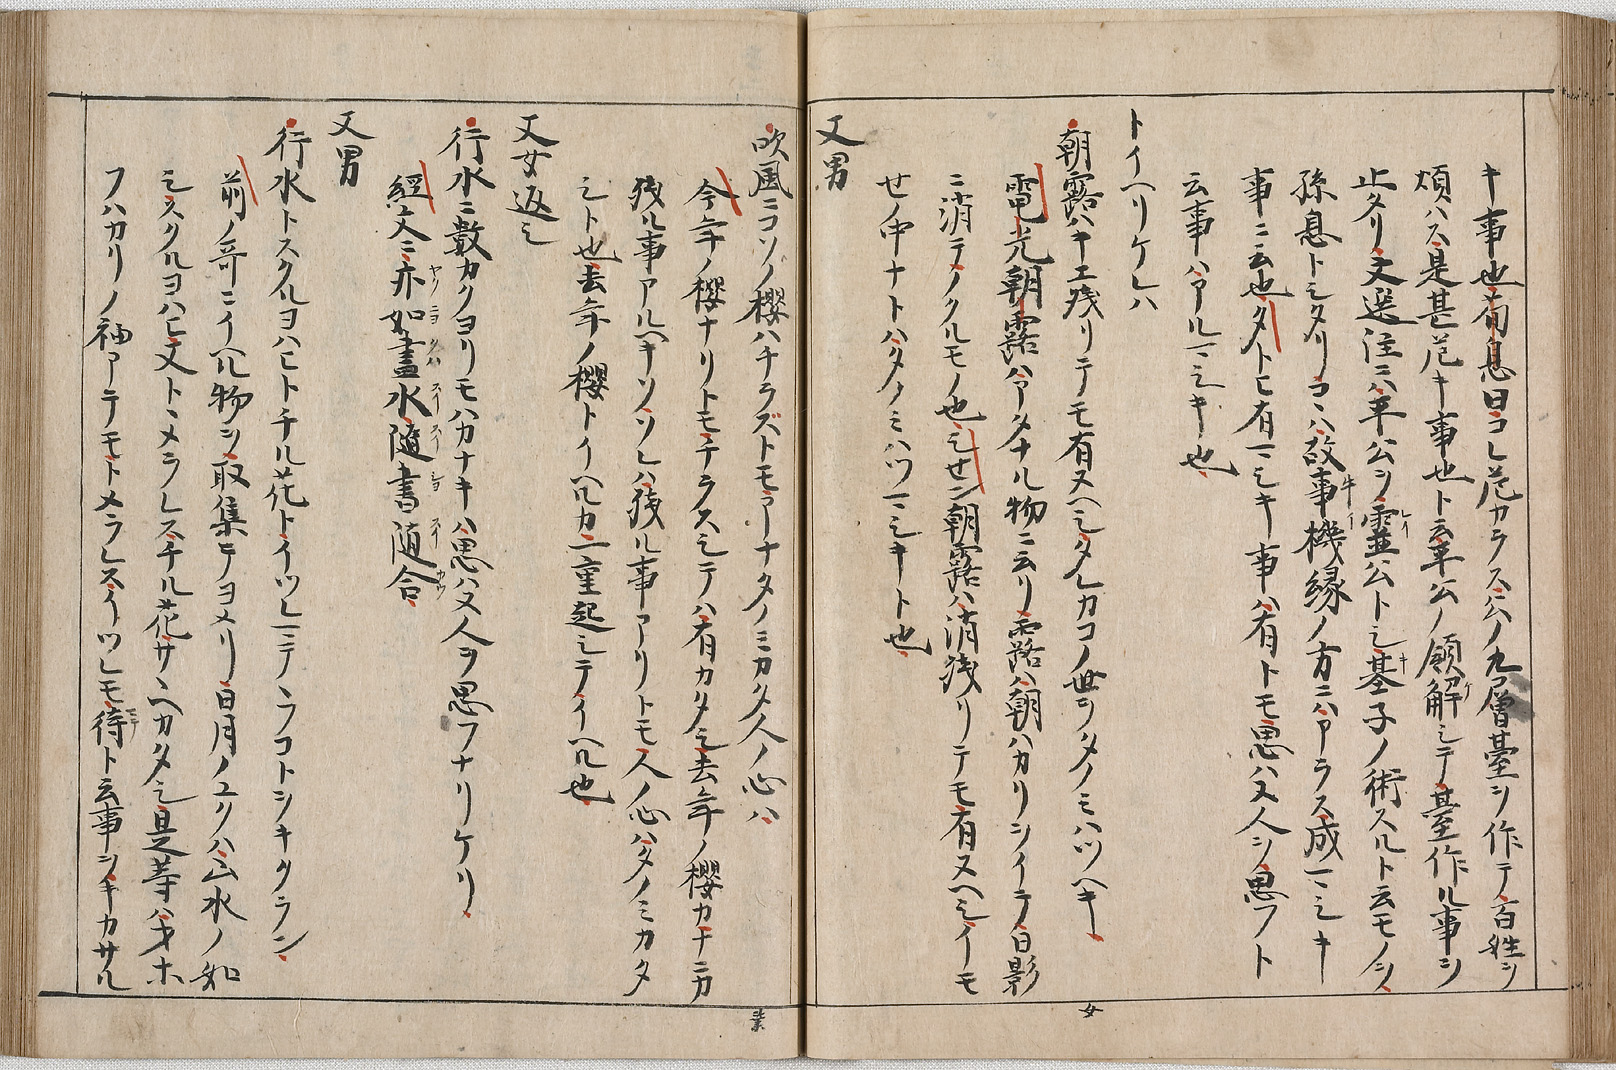 キ事也荀息曰コレ危カラス公ノ九層臺ヲ作テ百姓ヲ
煩ハス是甚危キ事也ト云平公ノ領解シテ臺作ル事ヲ
止タリ文選注ニハ平公ヲ靈公トシ基子ノ術スルト云モノヲ
孫息トシタリコハ故事機縁ノ方ニハアラス成一シキ
事ニ云也タトヒ有一シキ事ハ有トモ思ハヌ人ヲ思フト
云事ハアル一シキ也
トイヘリケレハ
朝露ハキエ残リテモ有ヌヘシタレカコノ世ヲタノミハツヘキ
電光朝露ハアタナル物ニ云リ露ハ朝ハカリヲイテ日影
ニ消テノクルモノ也シセン朝露ハ消残リテモ有ヌヘシイモ
セノ中ナトハタノミハツ一シキト也
又男
吹風ニコソノ櫻ハチラズトモアナタノミカタ人ノ心ハ
今年ノ櫻ナリトモチラスシテハ有カタシ去年ノ櫻カナニカ
残ル事アルヘキソソレハ残ル事アリトモ人ノ心ハタノミカタ
シト也去年ノ櫻トイヘルカ一重起シテイヘル也
又女返シ
行水ニ數カクヨリモハカナキハ思ハヌ人ヲ思フナリケリ
經文ニ亦如畫水隨書随合
又男
行水トスクルヨハヒトチル花トイツレ一テヽフコトヲキクラン
前ノ哥ニイヘル物ヲ取集テヨメリ日月ノユクハ山水ノ如
シスクルヨハヒ又トヽメラレスチル花サヽヘカタシ是等ハ才ホ
フハカリノ袖アテモトメラレスイツレモ待ト云事ヲキカサル
女
業